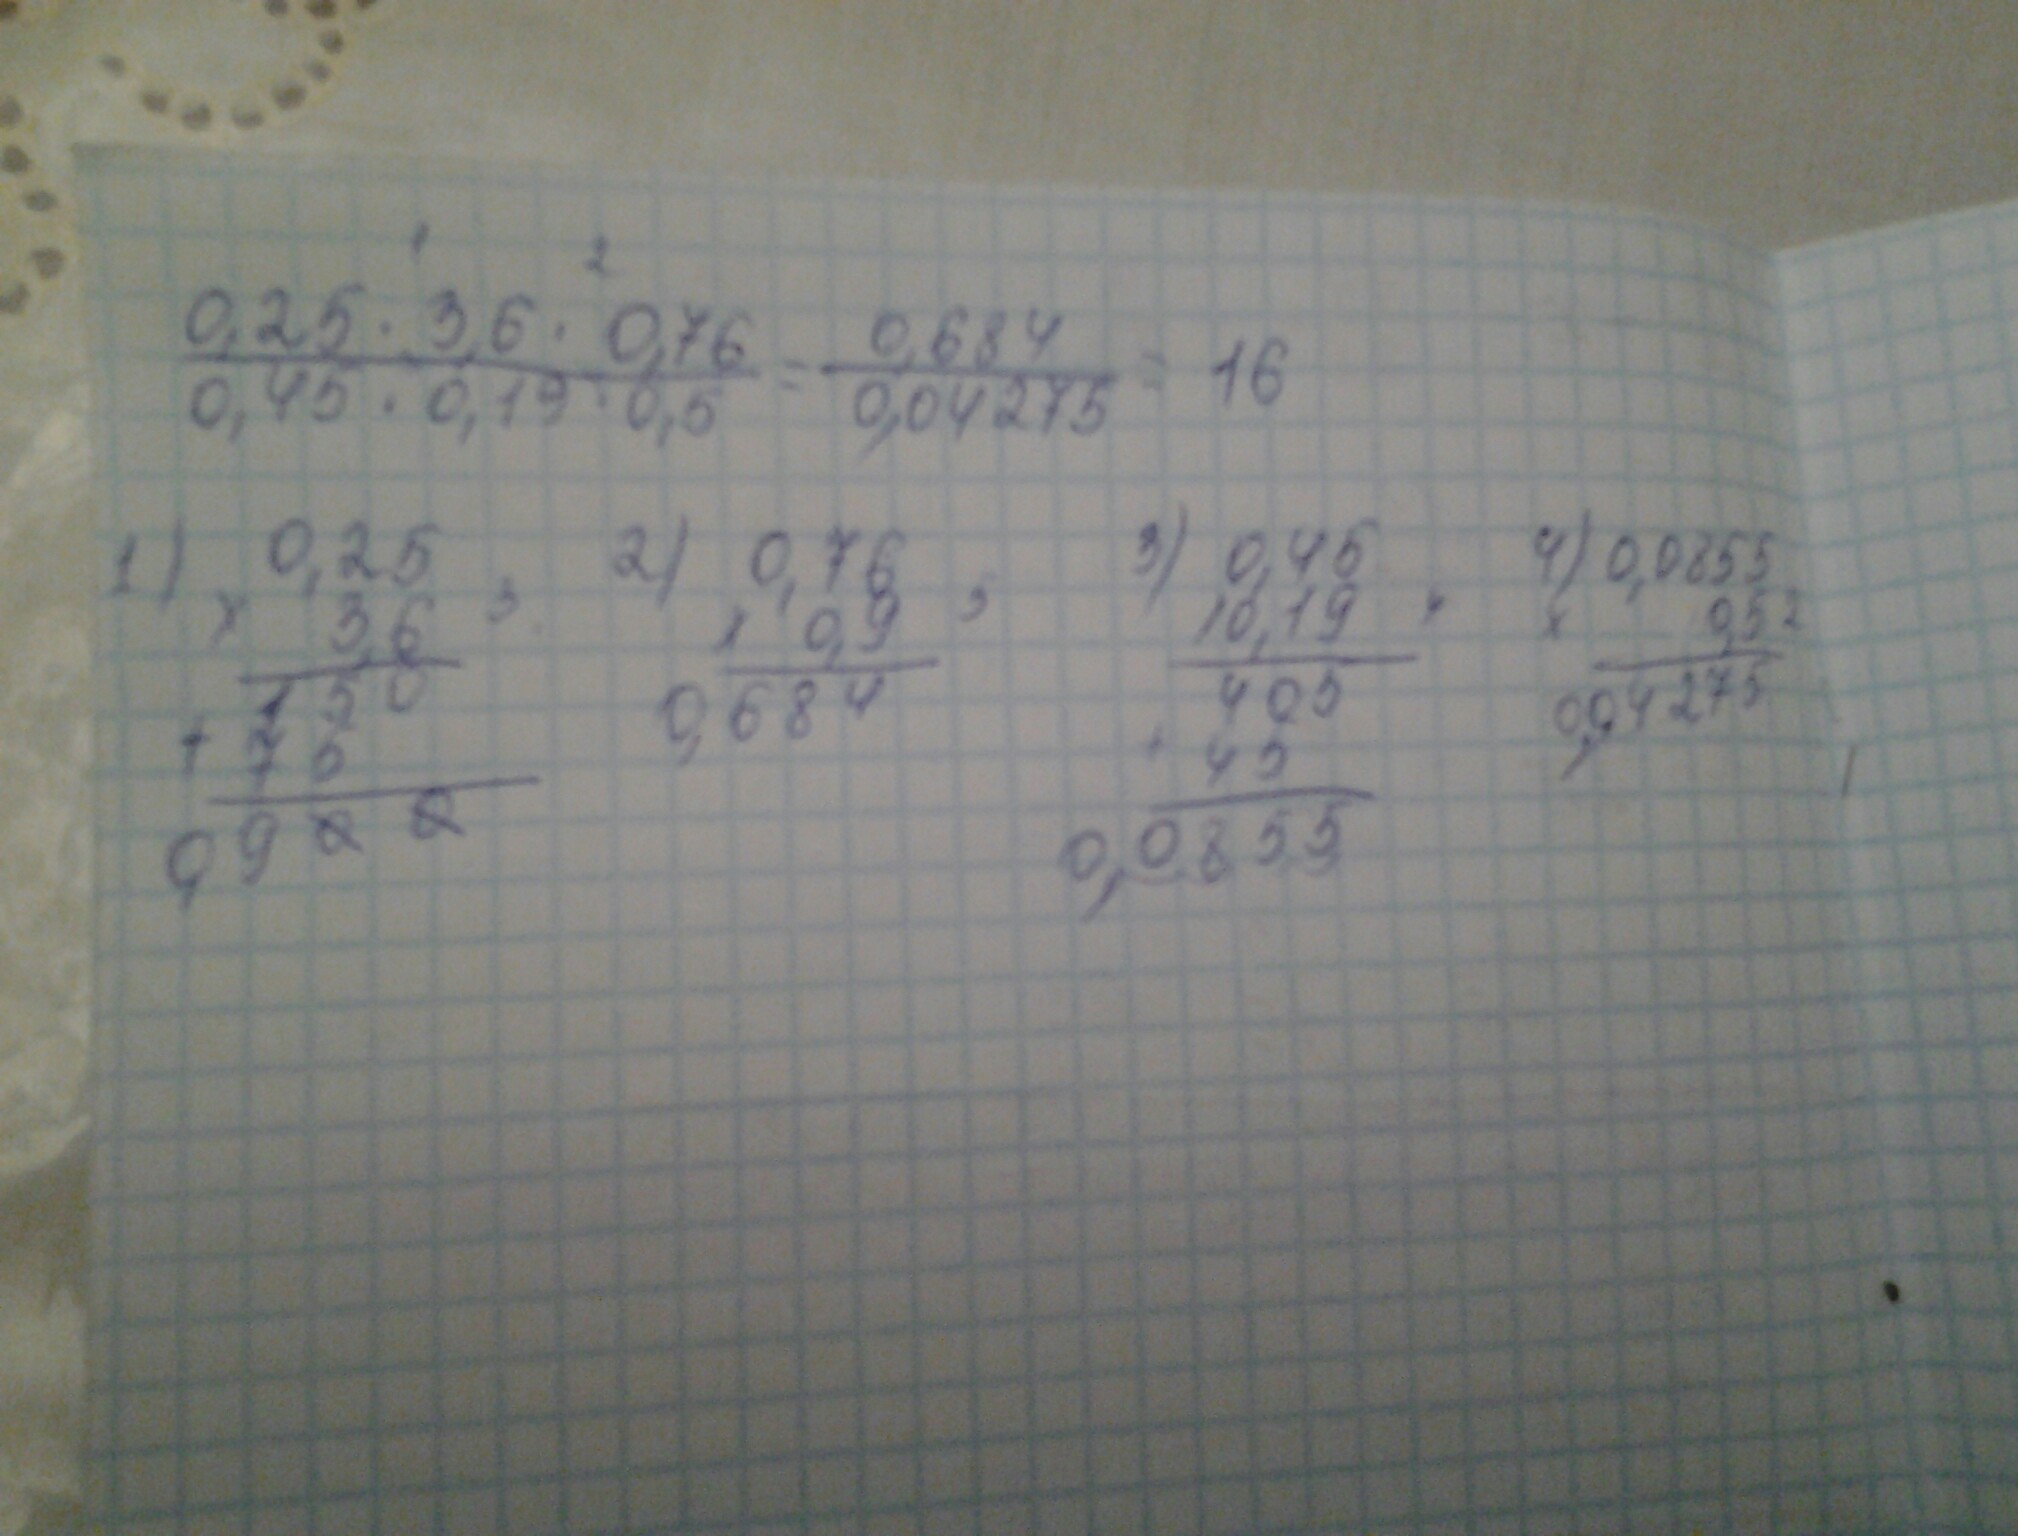 1 2
0,25 · 3,6 · 0,76 / 0,45 · 0,19 · 0,5 = 0,684 / 0,04275 = 16
1) 0,25 2) 0,76 3) 0,45 4) 0,0855
x 3,6 x 0,9 0,19 x 0,5
150 0,684 405 0,04275
+ 75 + 45
0,900 0,0855